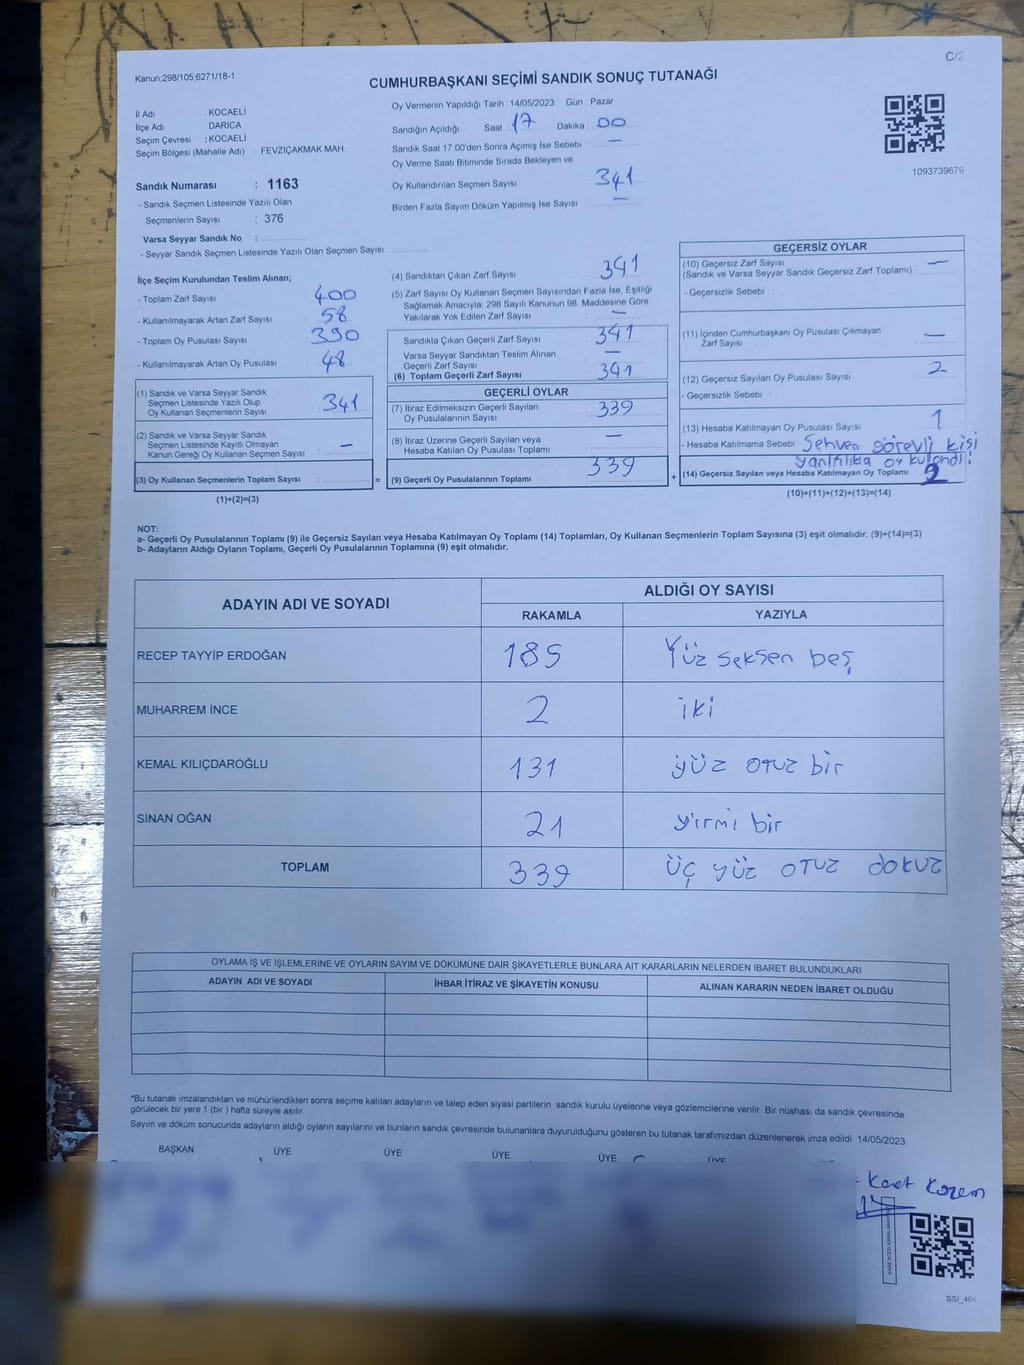 C/2
Kanun;298/105;6271/18-1
CUMHURBAŞKANI SEÇİMİ SANDIK SONUÇ TUTANAĞI
İl Adı : KOCAELİ
İlçe Adı : DARICA
Seçim Çevresi : KOCAELİ
Seçim Bölgesi (Mahalle Adı) : FEVZİÇAKMAK MAH
Oy Vermenin Yapıldığı Tarih : 14/05/2023 Gün : Pazar
Sandığın Açıldığı Saat 17 Dakika 00
Sandık Saat 17:00'den Sonra Açılmış İse Sebebi —
Oy Verme Saati Bitiminde Sırada Bekleyen ve
Oy Kullandırılan Seçmen Sayısı 341
Birden Fazla Sayım Döküm Yapılmış İse Sayısı —
1093739679
Sandık Numarası : 1163
- Sandık Seçmen Listesinde Yazılı Olan
Seçmenlerin Sayısı : 376
Varsa Seyyar Sandık No :
- Seyyar Sandık Seçmen Listesinde Yazılı Olan Seçmen Sayısı
İlçe Seçim Kurulundan Teslim Alınan;
- Toplam Zarf Sayısı 400
- Kullanılmayarak Artan Zarf Sayısı 58
- Toplam Oy Pusulası Sayısı 390
- Kullanılmayarak Artan Oy Pusulası 48
(1) Sandık ve Varsa Seyyar Sandık
Seçmen Listesinde Yazılı Olup
Oy Kullanan Seçmenlerin Sayısı 341
(2) Sandık ve Varsa Seyyar Sandık
Seçmen Listesinde Kayıtlı Olmayan
Kanun Gereği Oy Kullanan Seçmen Sayısı —
(3) Oy Kullanan Seçmenlerin Toplam Sayısı =
(1)+(2)=(3)
(4) Sandıktan Çıkan Zarf Sayısı 341
(5) Zarf Sayısı Oy Kullanan Seçmen Sayısından Fazla İse, Eşitliği
Sağlamak Amacıyla, 298 Sayılı Kanunun 98. Maddesine Göre
Yakılarak Yok Edilen Zarf Sayısı —
Sandıkta Çıkan Geçerli Zarf Sayısı 341
Varsa Seyyar Sandıktan Teslim Alınan
Geçerli Zarf Sayısı —
(6) Toplam Geçerli Zarf Sayısı 341
GEÇERLİ OYLAR
(7) İtiraz Edilmeksizin Geçerli Sayılan
Oy Pusulalarının Sayısı 339
(8) İtiraz Üzerine Geçerli Sayılan veya
Hesaba Katılan Oy Pusulası Toplamı —
(9) Geçerli Oy Pusulalarının Toplamı 339 +
GEÇERSİZ OYLAR
(10) Geçersiz Zarf Sayısı —
(Sandık ve Varsa Seyyar Sandık Geçersiz Zarf Toplamı)
- Geçersizlik Sebebi
(11) İçinden Cumhurbaşkanı Oy Pusulası Çıkmayan
Zarf Sayısı —
(12) Geçersiz Sayılan Oy Pusulası Sayısı 2
- Geçersizlik Sebebi
(13) Hesaba Katılmayan Oy Pusulası Sayısı 1
- Hesaba Katılmama Sebebi Sehven görevli kişi
yanlılıka oy kulandı.
(14) Geçersiz Sayılan veya Hesaba Katılmayan Oy Toplamı 2
(10)+(11)+(12)+(13)=(14)
NOT:
a- Geçerli Oy Pusulalarının Toplamı (9) ile Geçersiz Sayılan veya Hesaba Katılmayan Oy Toplamı (14) Toplamları, Oy Kullanan Seçmenlerin Toplam Sayısına (3) eşit olmalıdır. (9)+(14)=(3)
b- Adayların Aldığı Oyların Toplamı, Geçerli Oy Pusulalarının Toplamına (9) eşit olmalıdır.
ADAYIN ADI VE SOYADI ALDIĞI OY SAYISI
RAKAMLA YAZIYLA
RECEP TAYYİP ERDOĞAN 185 Yüz seksen beş
MUHARREM İNCE 2 iki
KEMAL KILIÇDAROĞLU 131 yüz otuz bir
SİNAN OĞAN 21 yirmi bir
TOPLAM 339 üç yüz otuz dokuz
OYLAMA İŞ VE İŞLEMLERİNE VE OYLARIN SAYIM VE DÖKÜMÜNE DAİR ŞİKAYETLERLE BUNLARA AİT KARARLARIN NELERDEN İBARET BULUNDUKLARI
ADAYIN ADI VE SOYADI İHBAR İTİRAZ VE ŞİKAYETİN KONUSU ALINAN KARARIN NEDEN İBARET OLDUĞU
*Bu tutanak imzalandıktan ve mühürlendikten sonra seçime katılan adayların ve talep eden siyasi partilerin sandık kurulu üyelerine veya gözlemcilerine verilir. Bir nüshası da sandık çevresinde
görülecek bir yere 1 (bir ) hafta süreyle asılır.
Sayım ve döküm sonucunda adayların aldığı oyların sayılarını ve bunların sandık çevresinde bulunanlara duyurulduğunu gösteren bu tutanak tarafımızdan düzenlenerek imza edildi. 14/05/2023
BAŞKAN ÜYE ÜYE ÜYE ÜYE ÜYE
SSI_404